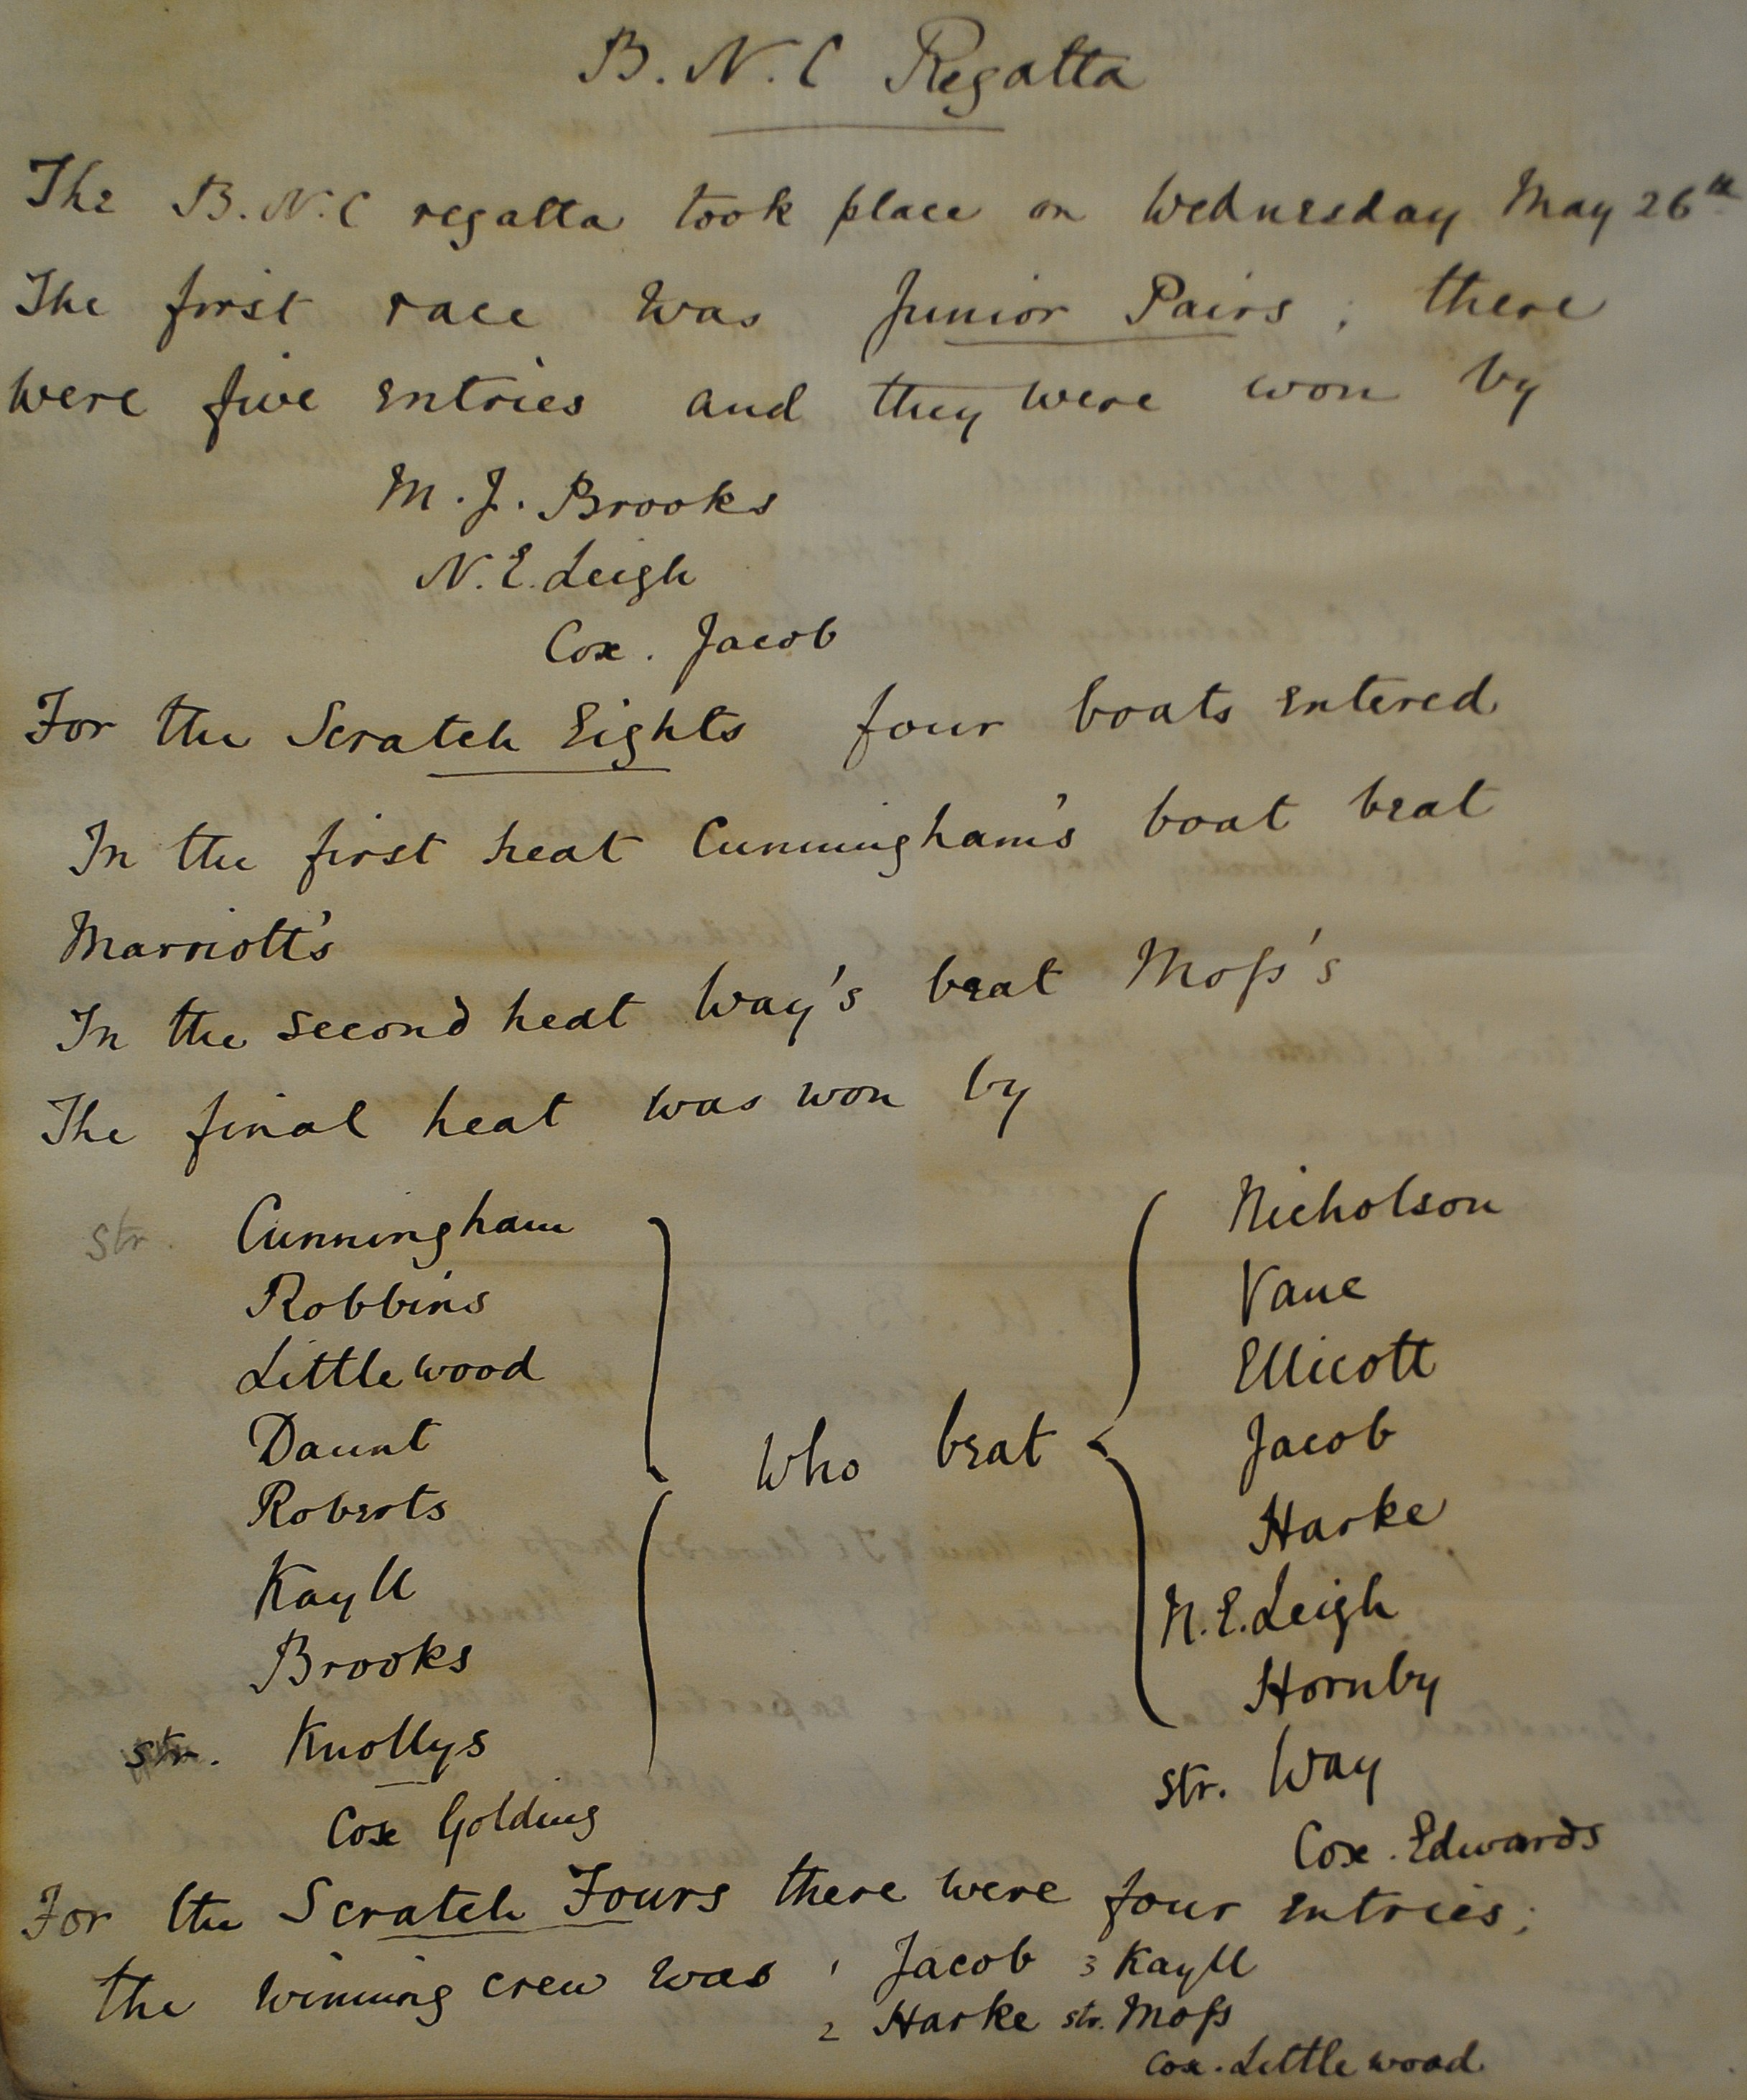 B. N. C Regatta
The B. N. C regatta took place on Wednesday May 26th
The first race was Junior Pairs ; there
were five entries and they were won by
M. J. Brooks
N. E. Leigh
Cox. Jacob
For the Scratch Eights four boats entered
In the first heat Cunningham's boat beat
Marriott's
In the second heat Way's beat Moſs's
The final heat was won by
str. Cunningham
Robbins
Littlewood
Daunt
Roberts
Kayll
Brooks
str. Knollys
Cox Golding
who beat
Nicholson
Vane
Ellicott
Jacob
Harke
N. E. Leigh
Hornby
str. Way
Cox. Edwards
For the Scratch Fours there were four entries;
the winning crew was 1 Jacob 3 Kayll
2 Harke str. Moſs
cox. Littlewood